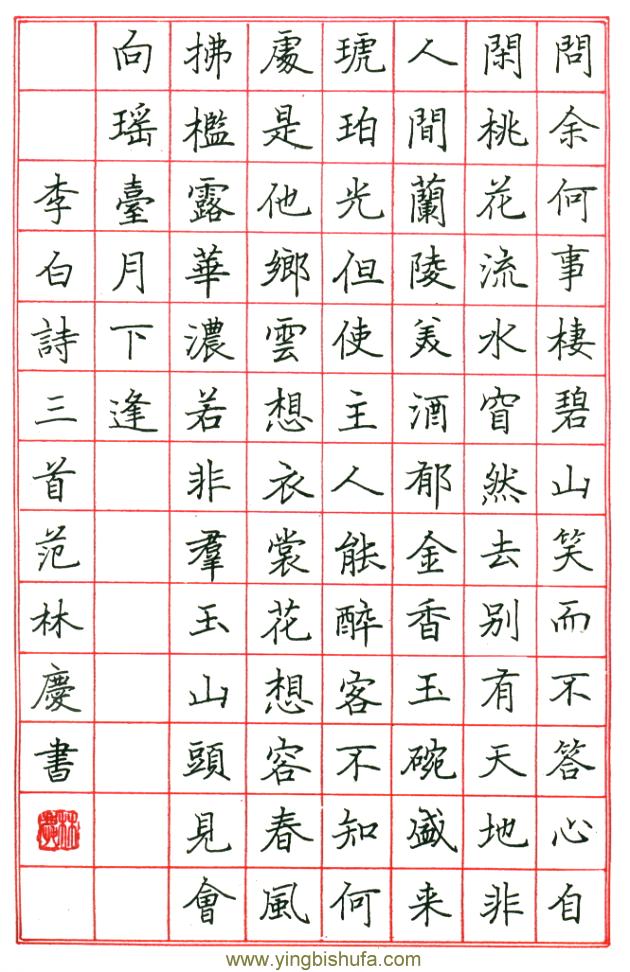 問余何事棲碧山笑而不答心自
閑桃花流水窅然去别有天地非
人間蘭陵美酒郁金香玉碗盛来
琥珀光但使主人能醉客不知何
處是他鄉雲想衣裳花想容春風
拂檻露華濃若非羣玉山頭見會
向瑶臺月下逢
李白詩三首范林慶書
林慶
www.yingbishufa.com